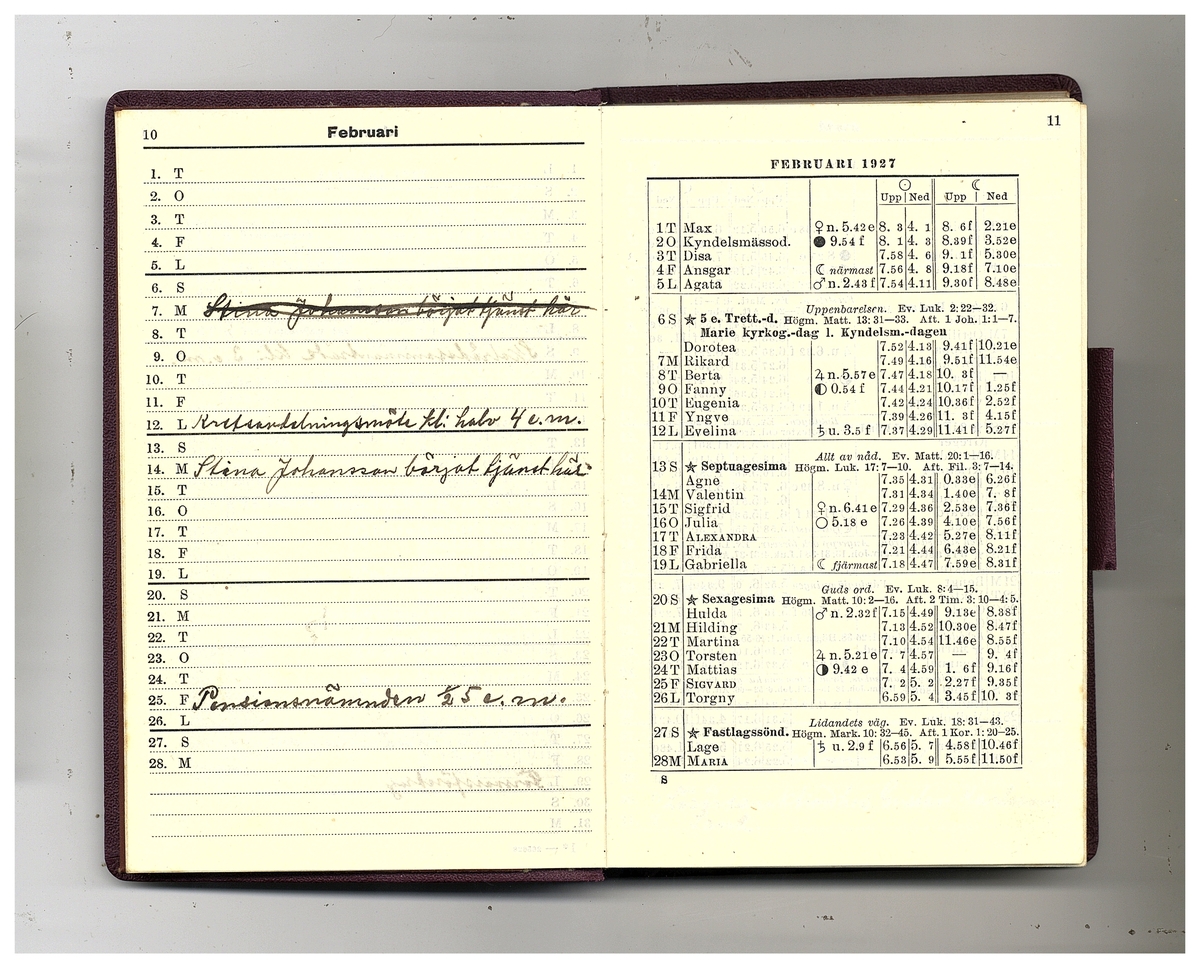 10 Februari
1. T
2. O
3. T
4. F
5. L
6. S
7. M Stina Johansson börjat tjänst här
8. T
9. O
10. T
11. F
12. L Kretsavdelningsmöte kl: halv 4 e.m.
13. S
14. M Stina Johansson börjat tjänst här
15. T
16. O
17. T
18. F
19. L
20. S
21. M
22. T
23. O
24. T
25. F Pensionsnämnden ½5 e.m.
26. L
27. S
28. M
11
FEBRUARI 1927
☉ ☾
Upp Ned Upp Ned
1 T Max ♀ n. 5.42 e 8. 3 4. 1 8. 6 f 2.21e
2 O Kyndelsmässod. ● 9.54 f 8. 1 4. 3 8.39f 3.52e
3 T Disa 7.58 4. 6 9. 1f 5.30e
4 F Ansgar ☾ närmast 7.56 4. 8 9.18f 7.10e
5 L Agata ♂ n. 2.43 f 7.54 4.11 9.30f 8.48e
Uppenbarelsen. Ev. Luk. 2: 22—32.
6 S ★ 5 e. Trett.-d. Högm. Matt. 13: 31—33. Aft. 1 Joh. 1: 1—7.
Marie kyrkog.-dag l. Kyndelsm.-dagen
Dorotea 7.52 4.13 9.41f 10.21e
7 M Rikard 7.49 4.16 9.51f 11.54e
8 T Berta ♃ n. 5.57 e 7.47 4.18 10. 3f —
9 O Fanny ◐ 0.54 f 7.44 4.21 10.17f 1.25f
10 T Eugenia 7.42 4.24 10.36f 2.52f
11 F Yngve 7.39 4.26 11. 3f 4.15f
12 L Evelina ♄ u. 3.5 f 7.37 4.29 11.41f 5.27f
Allt av nåd. Ev. Matt. 20: 1—16.
13 S ★ Septuagesima Högm. Luk. 17: 7—10. Aft. Fil. 3: 7—14.
Agne 7.35 4.31 0.33e 6.26f
14 M Valentin 7.31 4.34 1.40e 7. 8f
15 T Sigfrid ♀ n. 6.41 e 7.29 4.36 2.53e 7.36f
16 O Julia ○ 5.18 e 7.26 4.39 4.10e 7.56f
17 T ALEXANDRA 7.23 4.42 5.27e 8.11f
18 F Frida 7.21 4.44 6.43e 8.21f
19 L Gabriella ☾ fjärmast 7.18 4.47 7.59e 8.31f
Guds ord. Ev. Luk. 8: 4—15.
20 S ★ Sexagesima Högm. Matt. 10: 2—16. Aft. 2 Tim. 3: 10—4: 5.
Hulda ♂ n. 2.32 f 7.15 4.49 9.13e 8.38f
21 M Hilding 7.13 4.52 10.30e 8.47f
22 T Martina 7.10 4.54 11.46e 8.55f
23 O Torsten ♃ n. 5.21 e 7. 7 4.57 — 9. 4f
24 T Mattias ◑ 9.42 e 7. 4 4.59 1. 6f 9.16f
25 F SIGVARD 7. 2 5. 2 2.27f 9.35f
26 L Torgny 6.59 5. 4 3.45f 10. 3f
Lidandets väg. Ev. Luk. 18: 31—43.
27 S ★ Fastlagssönd. Högm. Mark. 10: 32—45. Aft. 1 Kor. 1: 20—25.
Lage ♄ u. 2.9 f 6.56 5. 7 4.58f 10.46f
28 M MARIA 6.53 5. 9 5.55f 11.50f
S